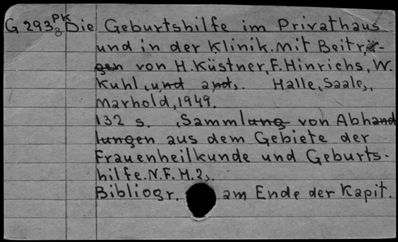 G 293 PK 8 Die Geburtshilfe im Privathaus
und in der Klinik. Mit Beiträ-
gen von H. Küstner, F. Hinrichs, W.
Kuhl, und and.. Halle, Saale,
Marhold, 1949.
132 s. ,Sammlung von Abhand
lungen aus dem Gebiete der
Frauenheilkunde und Geburts-
hilfe. N.F. H. 2,.
Bibliogr. am Ende der Kapit.